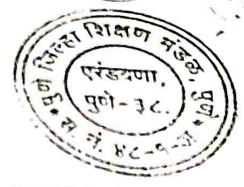 पुणे जिल्हा शिक्षण मंडळ, पुणे
एरंडवणा,
पुणे-३८.
स. नं. ४८-१-अ